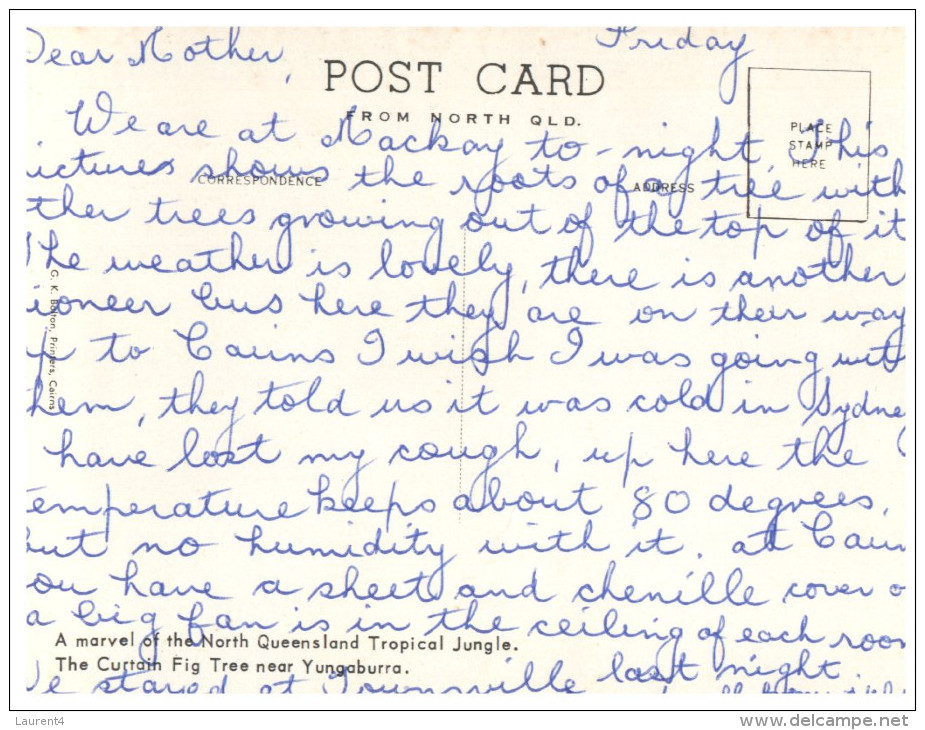 Dear Mother, Friday
POST CARD
FROM NORTH QLD.
We are at Mackay to-night, This
PLACE
STAMP
HERE
ictures shows the roots of a tree with
CORRESPONDENCE
ADDRESS
ther trees growing out of the top of it
The weather is lovely, there is another
ioneer bus here they are on their way
up to Cairns I wish I was going with
G. K. Bolton, Printers, Cairns
hem, they told us it was cold in Sydne
have lost my cough, up here the
emperature keeps about 80 degrees,
but no humidity with it. at Cairn
ou have a sheet and chenille cover o
a big fan is in the ceiling of each room
A marvel of the North Queensland Tropical Jungle.
The Curtain Fig Tree near Yungaburra.
We stayed at Townsville last night
Laurent4
www.delcampe.net